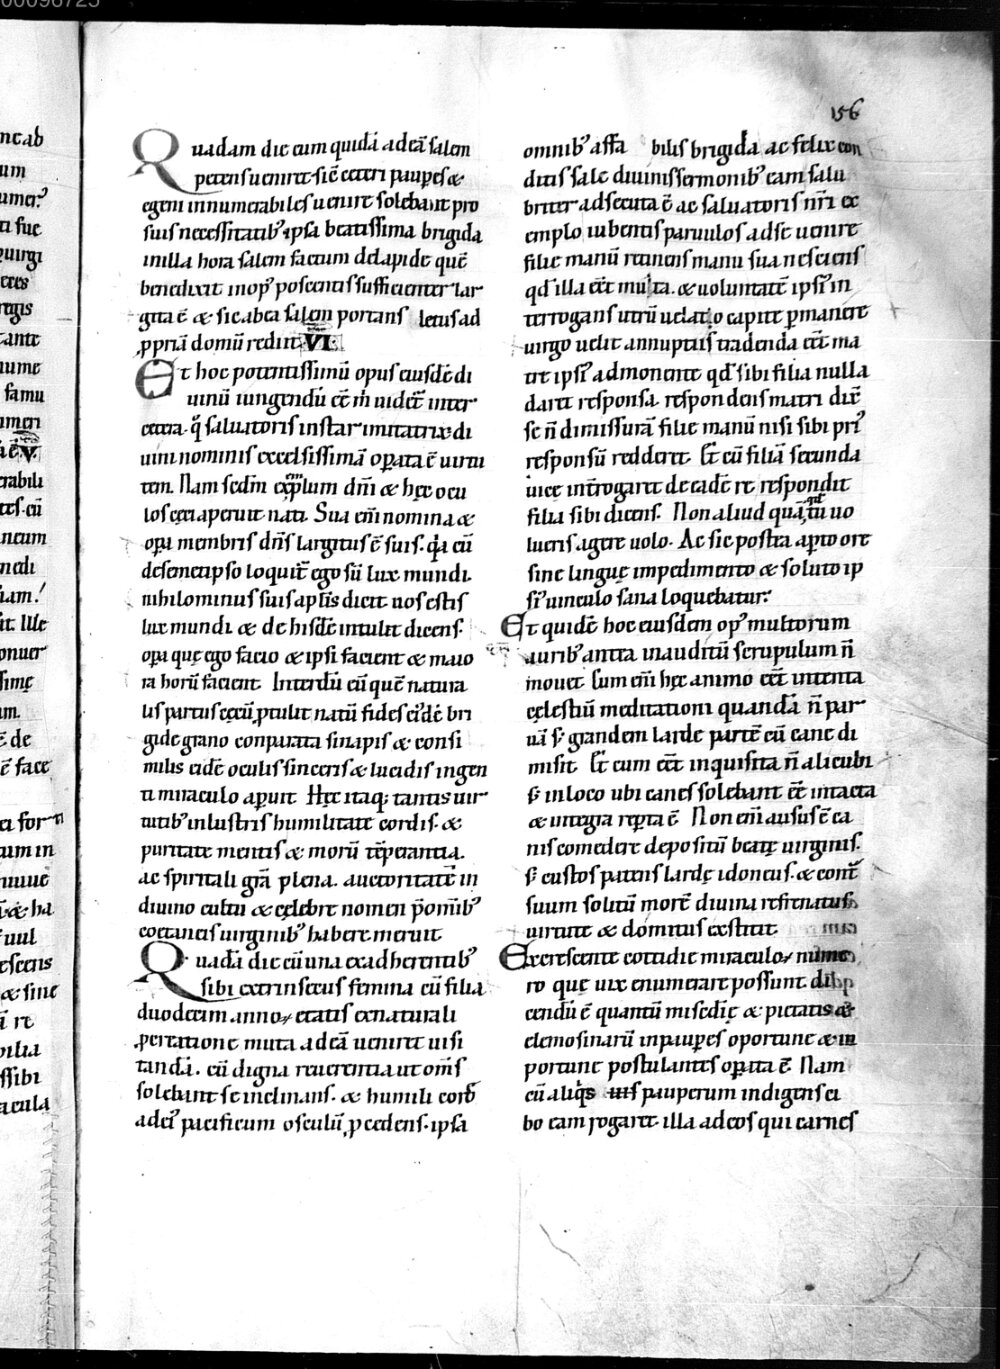 156
Quadam die cum quidā ad eā salem
petens ueniret sić ceteri pauꝑes &
egeni innumerabiles uenire solebant pro
suis necessitatibꝰ ipsa beatissima brigida
in illa hora salem factum de lapide quē
benedixit inopꝰ poscentis sufficienter lar
gita ē & sic ab ea salem portans letus ad
ꝓpriā domū rediit. VI.
Et hoc potentissimū opus eiusdē di
uinū iungendū eēt m̄ uidet̄ inter
cetera. q̄ saluatoris instar imitatrix di
uini nominis excelsissimā oꝑata ē uirtu
tem. Nam sedm̄ exp̄lum dn̄i & hęc ocu
los ceci aperuit nati. Sua em̄ nomina &
oꝑa membris dn̄s largitus ē suis. q̄a cū
de semetipso loquit̄ ego sū lux mundi.
nihilominus suis apl̄is dicit uos estis
lux mundi & de hisdē intulit dicens.
oꝑa quę ego facio & ipsi facient & maio
ra horū facient. Interdū cū quē natura
lis partus cęcū ꝓtulit natū fides eiꝰdē bri
gide grano conparata sinapis & consi
milis eidē oculis sinceris & lucidis ingen
ti miraculo aꝑuit. Hęc itaq; tantis uir
tutibꝰ inlustris humilitate cordis. &
puritate mentis & morū tēperantia.
ac spiritali gr̄a plena. auctoritatē in
diuino cultu & cęlebre nomen p̄ om̄ibꝰ
coetaneis uirginibꝰ habere meruit.
Quadā die cū una ex adherentibꝰ
sibi extrinsecus femina cū filia
duodecim annoꝝ etatis ex naturali
ꝓpertatione muta ad eā ueniret uisi
tandā. cū digna reuerentia ut om̄s
solebant se inclinans. & humili corꝺ
ad eiꝰ pacificum osculū ꝓcedens. ipsa
omnibꝰ affa bilis brigida ac felix con
ditis sale diuinis sermonibꝰ eam salu
briter adsecuta ē ac saluatoris nr̄i ex
emplo iubentis paruulos ad se uenire
filię manū retinens manu sua nesciens
qd̄ illa eēt muta. & uoluntatē ipsiꝰ in
terrogans utrū uelato capite ꝑmanere
uirgo uelit an nuptiis tradenda eēt. ma
tre ipsiꝰ admonente qd̄ sibi filia nulla
daret responsa. respondens matri dix̄
se n̄ dimissurā filie manū nisi sibi priꝰ
responsū redderet. Et cū filiā secunda
uice int̄rogaret de eadē re respondit
filia sibi dicens. Non aliud quā qd̄ tū uo
lueris agere uolo. Ac sic postea aꝑto ore
sine linguę impedimento & soluto ip
siꝰ uinculo sana loquebatur.
Et quidē hoc eiusdem opꝰ multorum
auribꝰ antea inauditū scrupulum n̄
mouet. Cum em̄ hęc animo eēt intenta
cęlestiū meditationi quandā n̄ par
uā s; grandem larde partē cū cane di
misit. Et cum eēt inquisita n̄ alicubi
s; in loco ubi canes solebant eēt intacta
& integra reꝑta ē. Non em̄ ausus ē ca
nis comedere depositū beatę uirginis.
s; custos patiens lardę idoneus. & cont̄
suum solitū morē diuina refrenatus
uirtute & domitus exstitit.
Excrescente cotidie miraculoꝝ nume
ro quę uix enumerare possunt
cendū ē quantū miscd̄ię & pietatis &
elemosinarū in pauꝑes oportune & in
portune postulantes oꝑata ē. Nam
cū aliq̄s pauperum indigens ci
bo eam rogaret. illa ad eos qui carnes